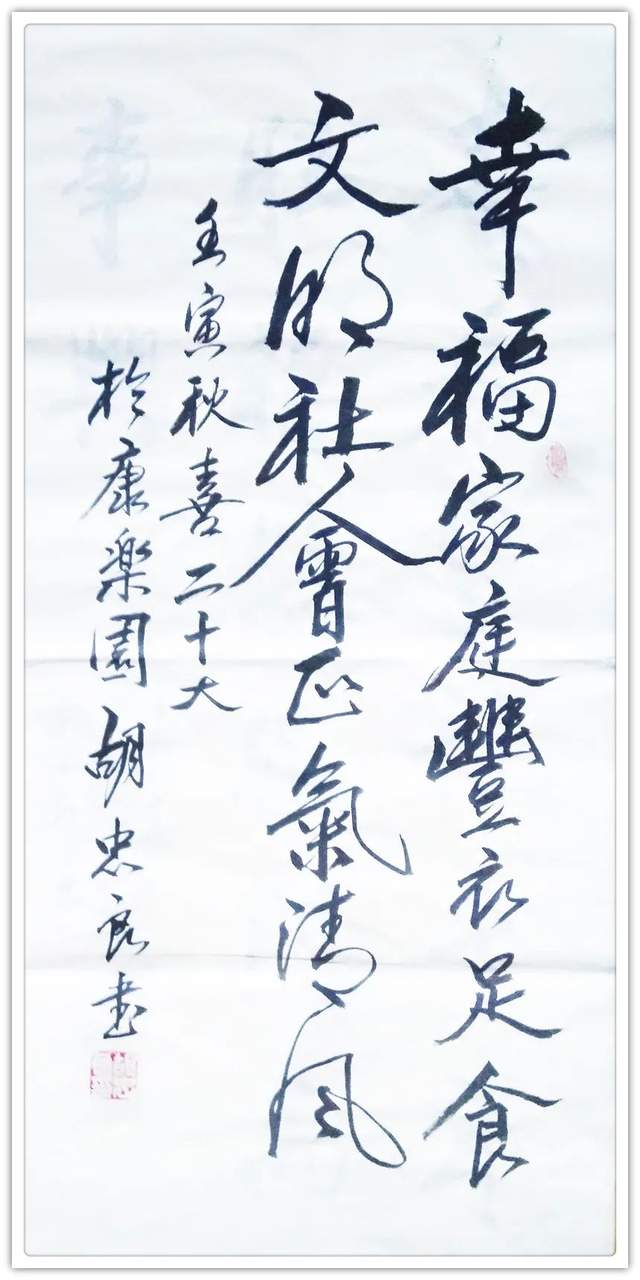 幸福家庭豐衣足食
文明社會正氣清風
壬寅秋喜二十大
於康樂園胡忠良書